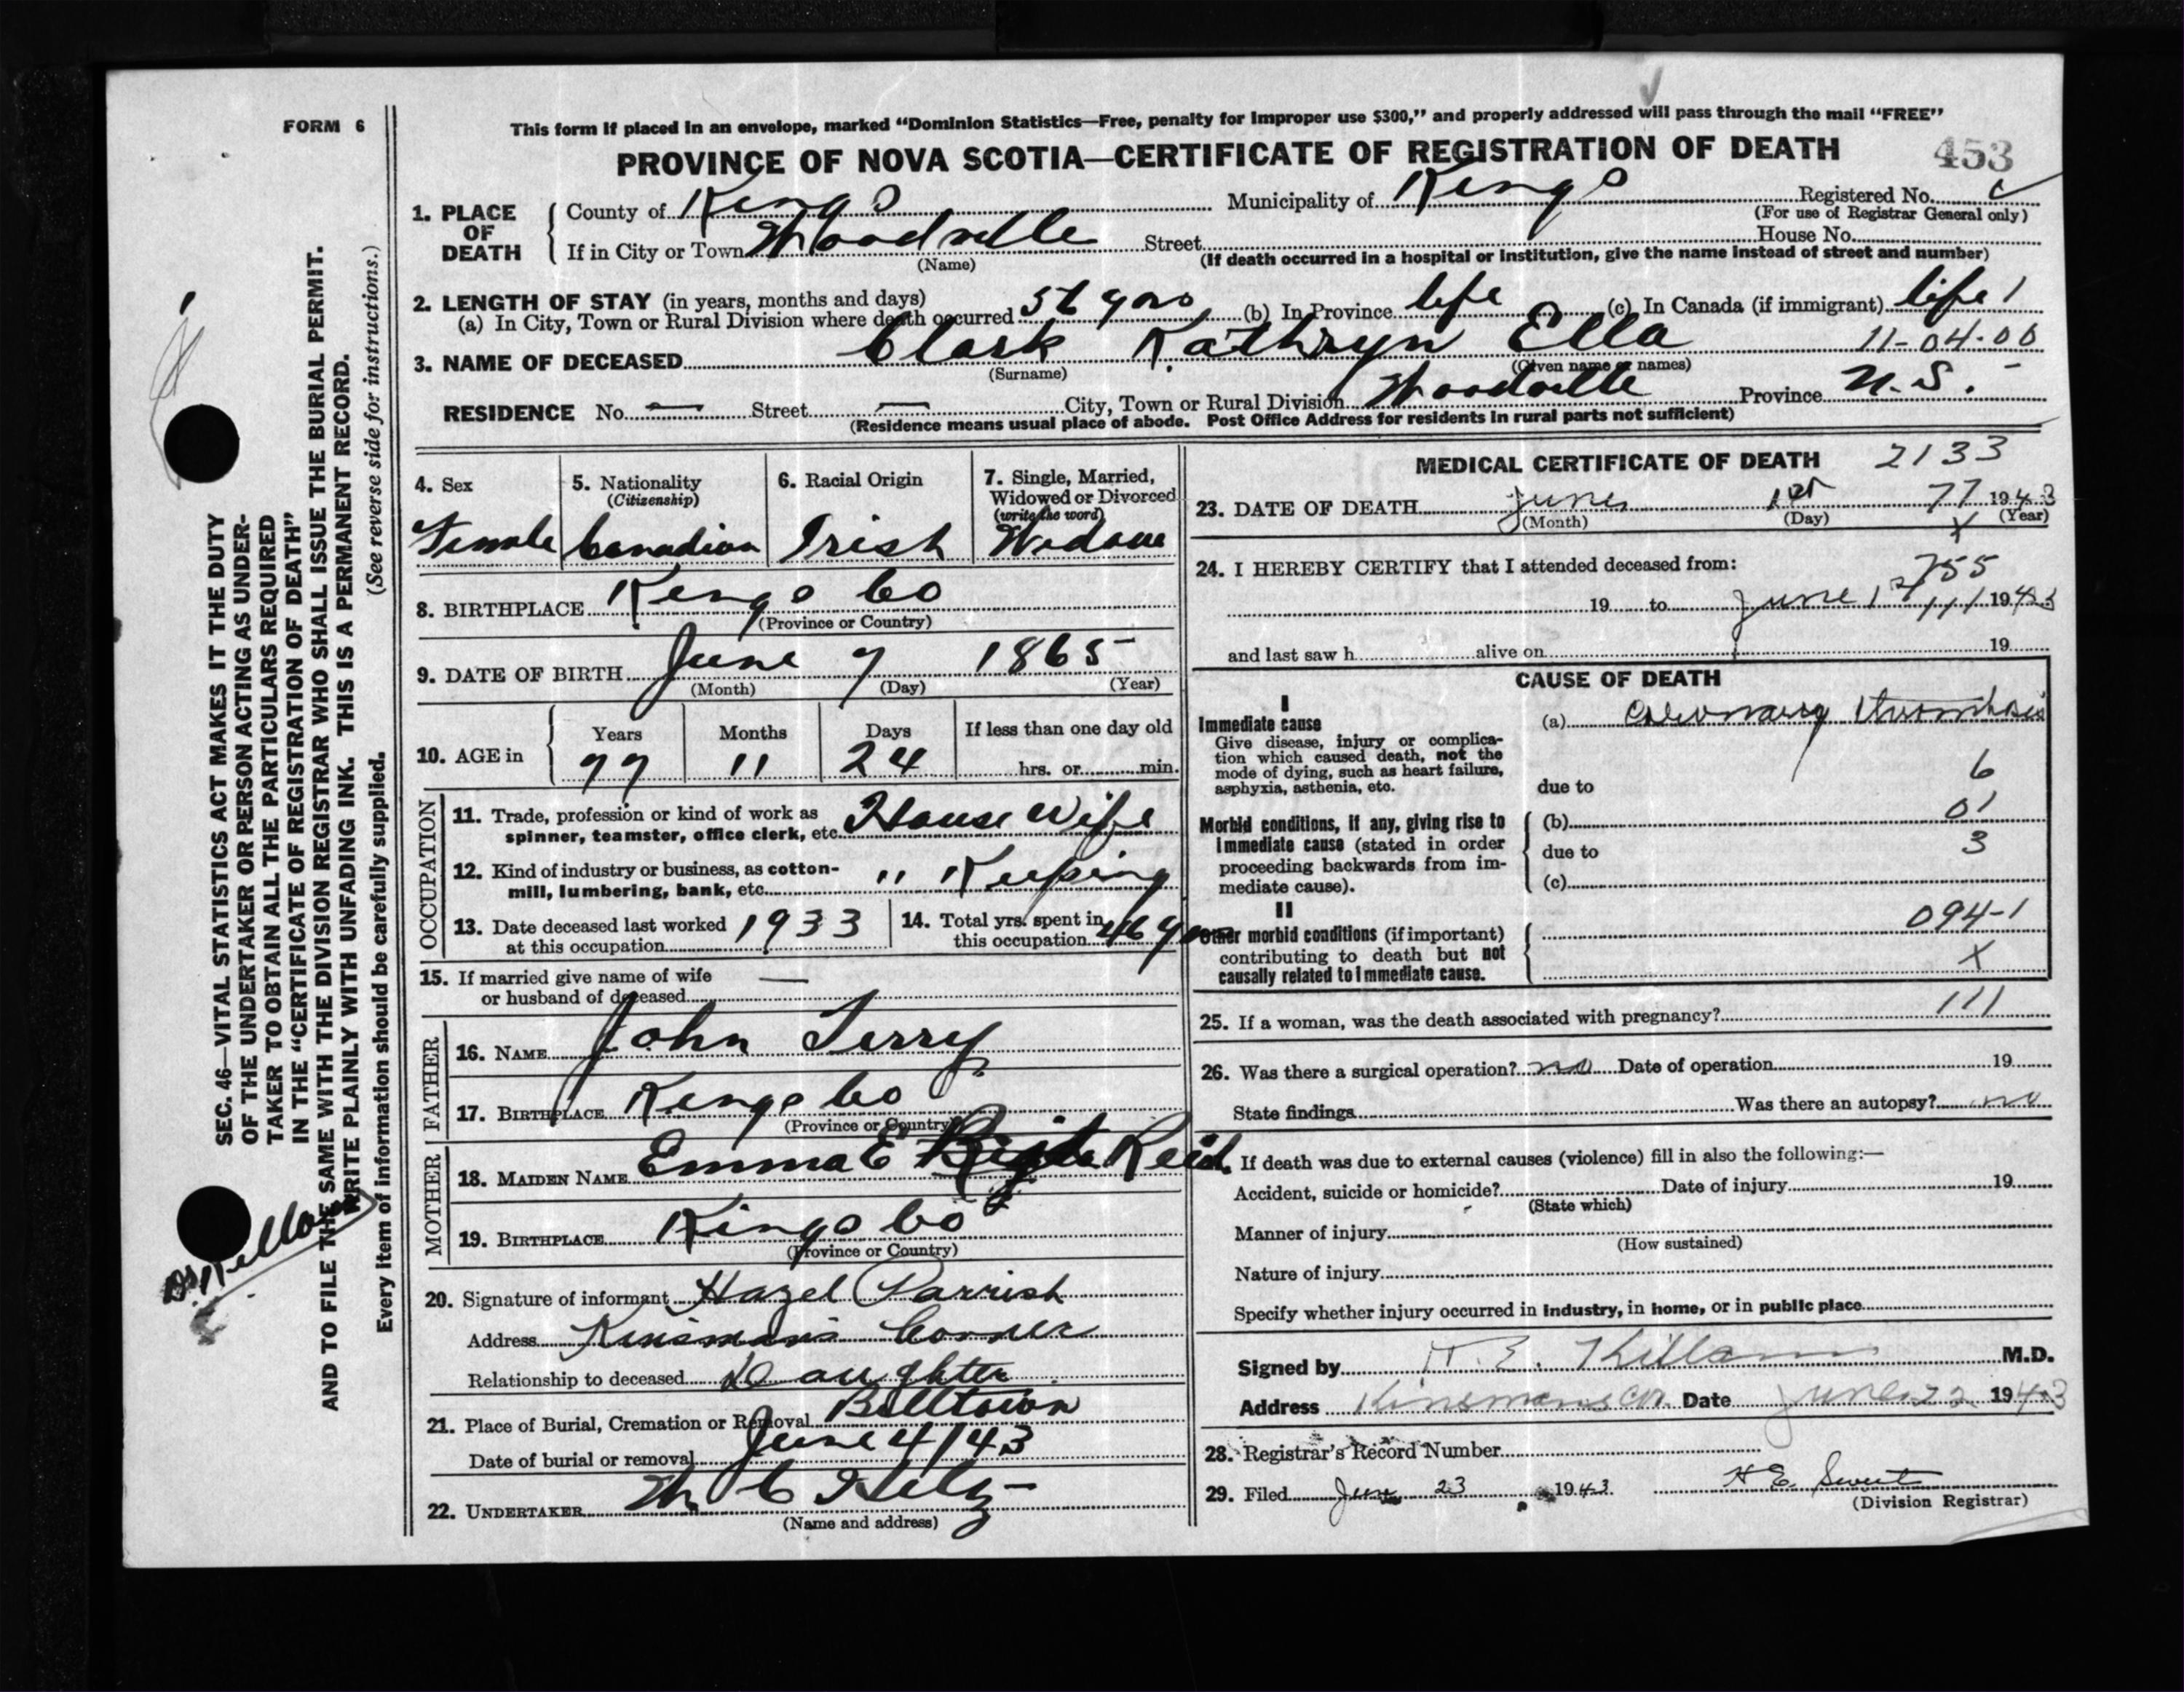 FORM 6
This form if placed in an envelope, marked "Dominion Statistics—Free, penalty for improper use $300," and properly addressed will pass through the mail "FREE"
PROVINCE OF NOVA SCOTIA—CERTIFICATE OF REGISTRATION OF DEATH 453
1. PLACE OF DEATH
County of Kings Municipality of Kings Registered No.
(For use of Registrar General only)
If in City or Town Woodville Street House No.
(Name) (If death occurred in a hospital or institution, give the name instead of street and number)
2. LENGTH OF STAY (in years, months and days)
(a) In City, Town or Rural Division where death occurred 56 yrs (b) In Province life (c) In Canada (if immigrant) life 1
3. NAME OF DECEASED Clark Kathryn Ella 11-04-00
(Surname) (Given name or names)
RESIDENCE No. — Street — City, Town or Rural Division Woodville Province N.S.
(Residence means usual place of abode. Post Office Address for residents in rural parts not sufficient)
4. Sex
Female
5. Nationality
(Citizenship)
Canadian
6. Racial Origin
Irish
7. Single, Married,
Widowed or Divorced
(write the word)
Widow
8. BIRTHPLACE Kings Co
(Province or Country)
9. DATE OF BIRTH June 7 1865
(Month) (Day) (Year)
10. AGE in
Years Months Days If less than one day old
77 11 24 hrs. or min.
OCCUPATION
11. Trade, profession or kind of work as
spinner, teamster, office clerk, etc. House Wife
12. Kind of industry or business, as cotton-
mill, lumbering, bank, etc. " Keeping
13. Date deceased last worked
at this occupation 1933
14. Total yrs. spent in
this occupation 46 yrs
15. If married give name of wife
or husband of deceased —
FATHER
16. NAME John Terry
17. BIRTHPLACE Kings Co
(Province or Country)
MOTHER
18. MAIDEN NAME Emma E Reid
19. BIRTHPLACE Kings Co
(Province or Country)
20. Signature of informant Hazel Parrish
Address Kinsman's Corner
Relationship to deceased Daughter
21. Place of Burial, Cremation or Removal Billtown
Date of burial or removal June 4/43
22. UNDERTAKER
(Name and address)
MEDICAL CERTIFICATE OF DEATH 2133
23. DATE OF DEATH June 1st 77 1943
(Month) (Day) (Year)
X
24. I HEREBY CERTIFY that I attended deceased from:
755
19 to June 1st 111 1943
and last saw h alive on 19
CAUSE OF DEATH
I
Immediate cause
Give disease, injury or complica-
tion which caused death, not the
mode of dying, such as heart failure,
asphyxia, asthenia, etc.
(a) Coronary thrombosis
6
due to
Morbid conditions, if any, giving rise to
immediate cause (stated in order
proceeding backwards from im-
mediate cause).
(b) 01
due to 3
(c)
II
Other morbid conditions (if important)
contributing to death but not
causally related to immediate cause.
094-1
X
25. If a woman, was the death associated with pregnancy? 111
26. Was there a surgical operation? no Date of operation 19
State findings Was there an autopsy? no
If death was due to external causes (violence) fill in also the following:—
Accident, suicide or homicide? Date of injury 19
(State which)
Manner of injury
(How sustained)
Nature of injury
Specify whether injury occurred in industry, in home, or in public place
Signed by Killam M.D.
Address Kinsmans Cor. Date June 22 1943
28. Registrar's Record Number
29. Filed June 23 1943 H E Sweet
(Division Registrar)
SEC. 46—VITAL STATISTICS ACT MAKES IT THE DUTY
OF THE UNDERTAKER OR PERSON ACTING AS UNDER-
TAKER TO OBTAIN ALL THE PARTICULARS REQUIRED
IN THE "CERTIFICATE OF REGISTRATION OF DEATH"
AND TO FILE THE SAME WITH THE DIVISION REGISTRAR WHO SHALL ISSUE THE BURIAL PERMIT.
WRITE PLAINLY WITH UNFADING INK. THIS IS A PERMANENT RECORD.
Every item of information should be carefully supplied. (See reverse side for instructions.)
Dr Killam